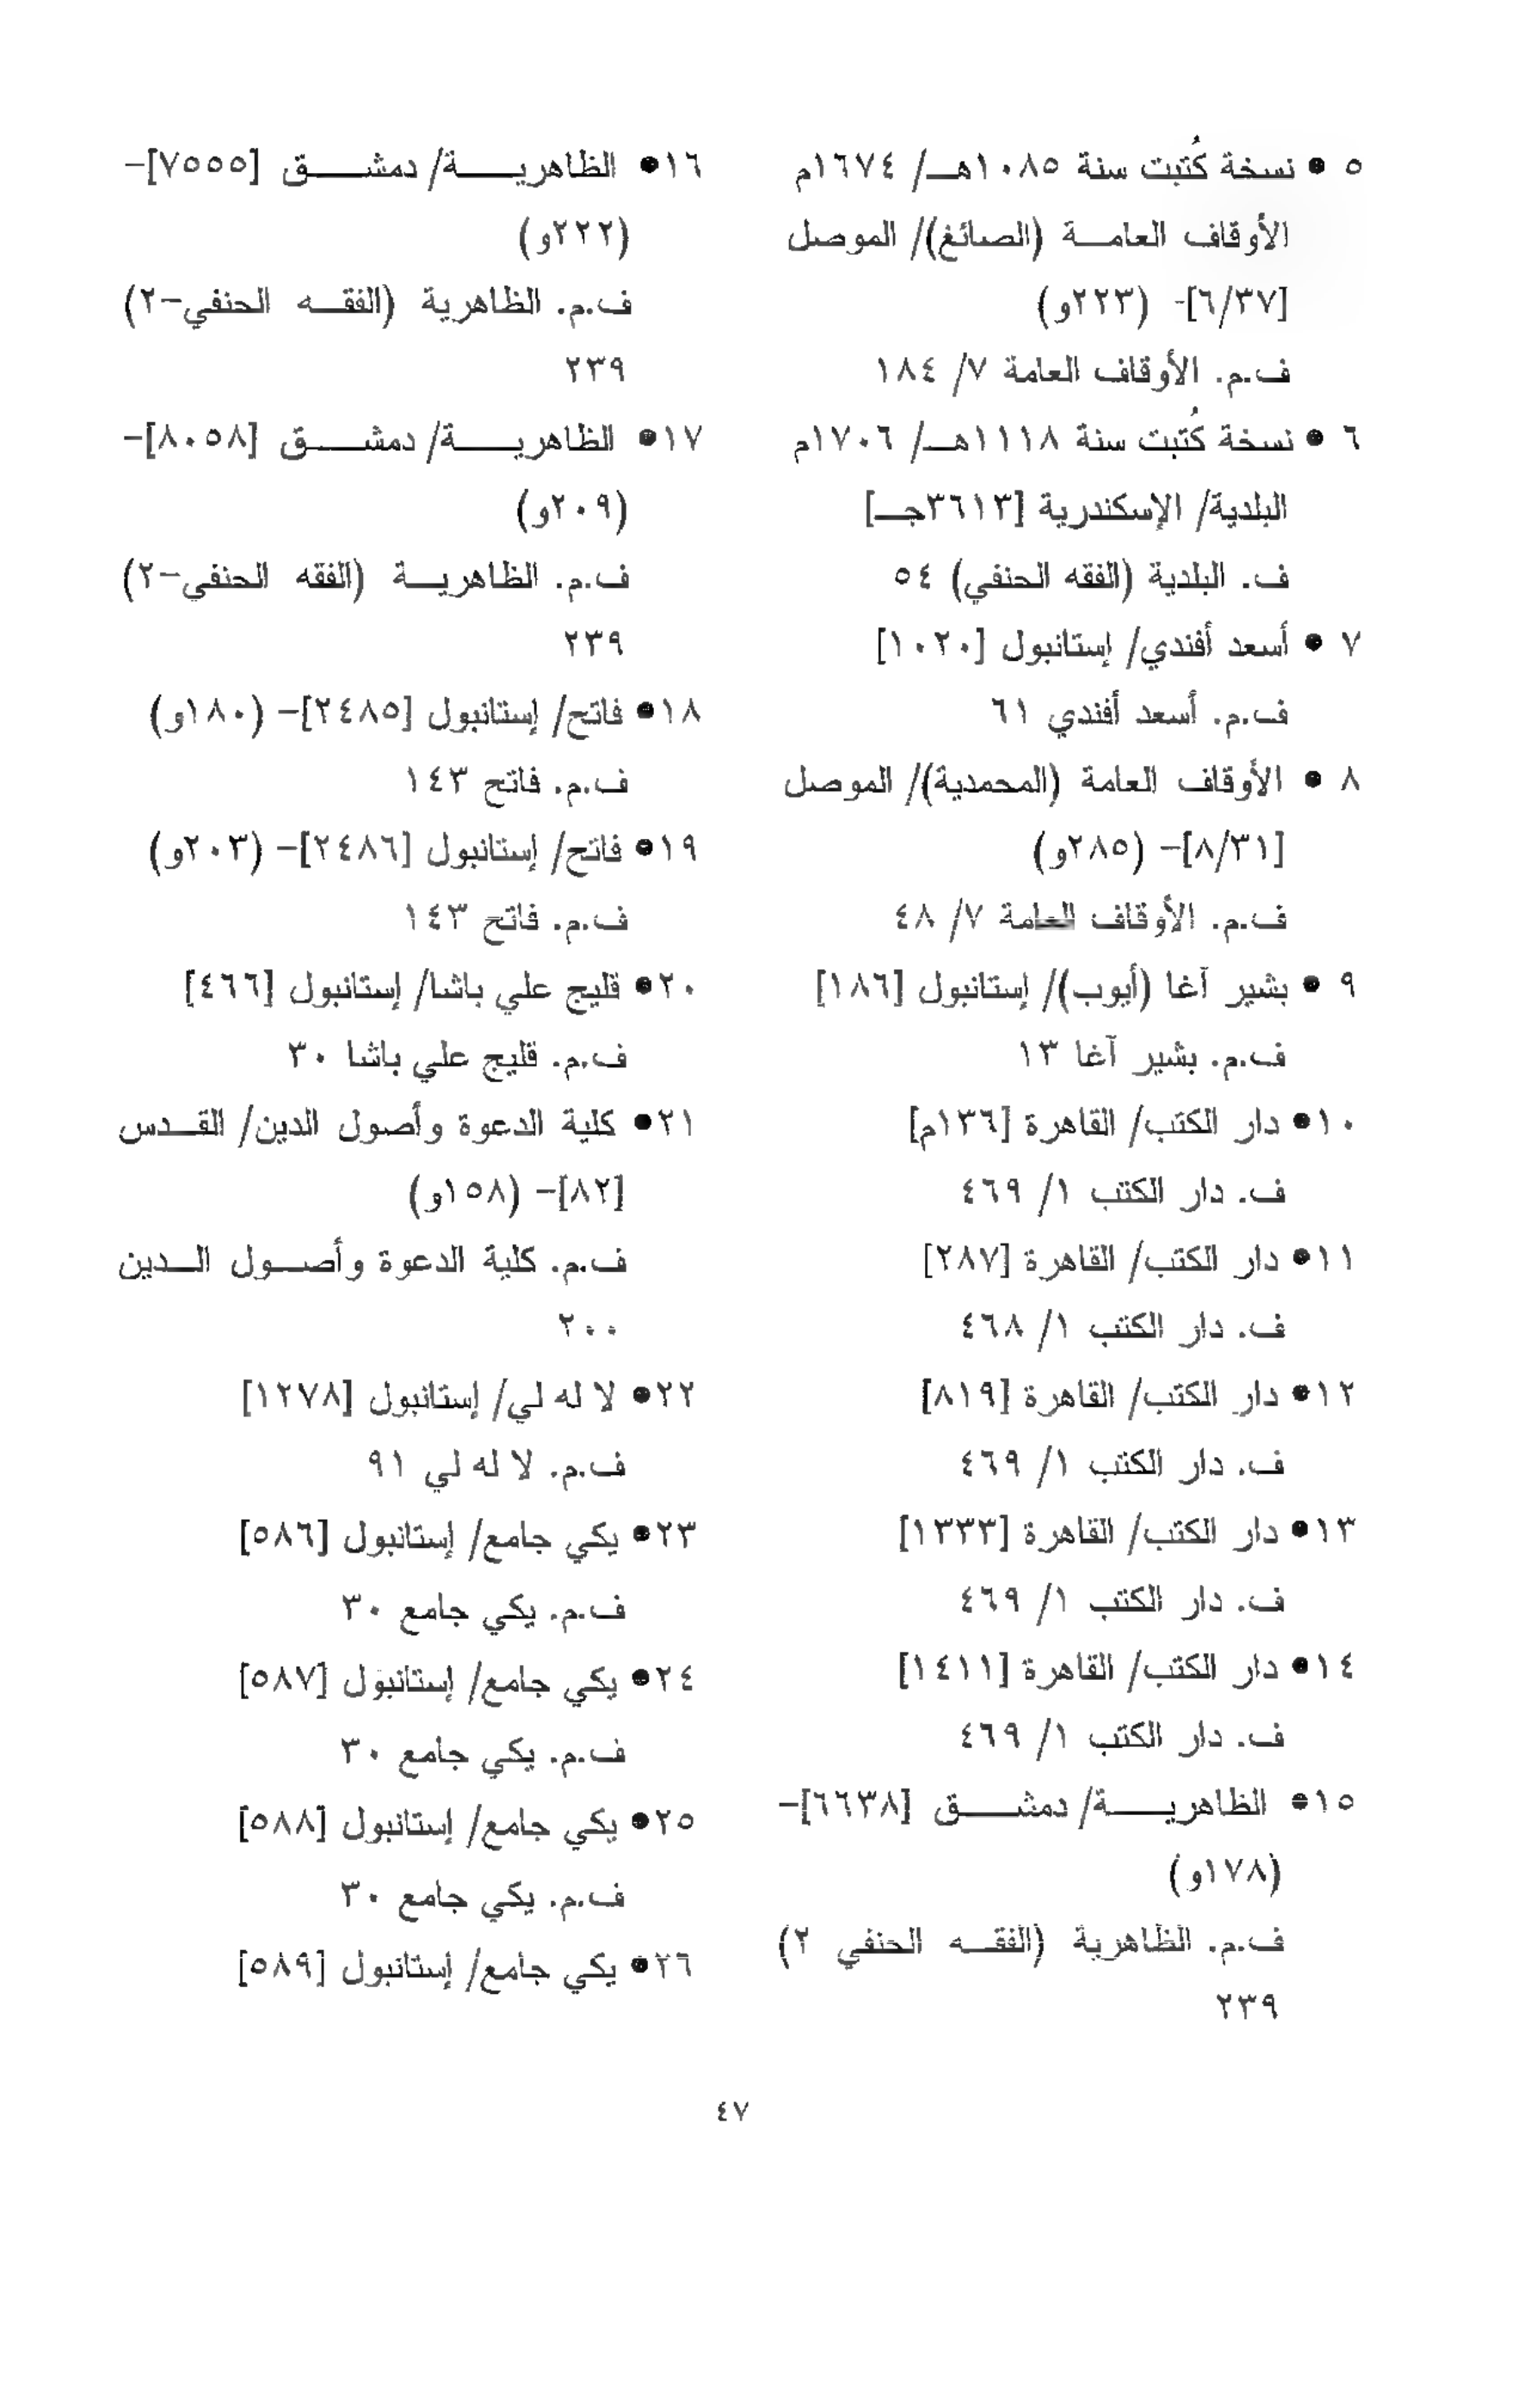 ٥ • نسخة كُتبت سنة ١٠٨٥هـ/ ١٦٧٤م
الأوقاف العامة (الصائغ)/ الموصل
[٦/٣٧]- (٢٢٣و)
ف.م. الأوقاف العامة ٧/ ١٨٤
٦ • نسخة كُتبت سنة ١١١٨هـ/ ١٧٠٦م
البلدية/ الإسكندرية [٣٦١٣جـ]
ف. البلدية (الفقه الحنفي) ٥٤
٧ • أسعد أفندي/ إستانبول [١٠٢٠]
ف.م. أسعد أفندي ٦١
٨ • الأوقاف العامة (المحمدية)/ الموصل
[٨/٣١]- (٢٨٥و)
ف.م. الأوقاف العامة ٧/ ٤٨
٩ • بشير آغا (أيوب)/ إستانبول [١٨٦]
ف.م. بشير آغا ١٣
١٠• دار الكتب/ القاهرة [١٣٦م]
ف. دار الكتب ١/ ٤٦٩
١١• دار الكتب/ القاهرة [٢٨٧]
ف. دار الكتب ١/ ٤٦٨
١٢• دار الكتب/ القاهرة [٨١٩]
ف. دار الكتب ١/ ٤٦٩
١٣• دار الكتب/ القاهرة [١٣٣٣]
ف. دار الكتب ١/ ٤٦٩
١٤• دار الكتب/ القاهرة [١٤١١]
ف. دار الكتب ١/ ٤٦٩
١٥• الظاهرية/ دمشق [٦٦٣٨]-
(١٧٨و)
ف.م. الظاهرية (الفقه الحنفي ٢)
٢٣٩
١٦• الظاهرية/ دمشق [٧٥٥٥]-
(٢٢٢و)
ف.م. الظاهرية (الفقه الحنفي-٢)
٢٣٩
١٧• الظاهرية/ دمشق [٨٠٥٨]-
(٢٠٩و)
ف.م. الظاهرية (الفقه الحنفي-٢)
٢٣٩
١٨• فاتح/ إستانبول [٢٤٨٥]- (١٨٠و)
ف.م. فاتح ١٤٣
١٩• فاتح/ إستانبول [٢٤٨٦]- (٢٠٣و)
ف.م. فاتح ١٤٣
٢٠• قليج علي باشا/ إستانبول [٤٦٦]
ف.م. قليج علي باشا ٣٠
٢١• كلية الدعوة وأصول الدين/ القدس
[٨٢]- (١٥٨و)
ف.م. كلية الدعوة وأصول الدين
٢٠٠
٢٢• لا له لي/ إستانبول [١٢٧٨]
ف.م. لا له لي ٩١
٢٣• يكي جامع/ إستانبول [٥٨٦]
ف.م. يكي جامع ٣٠
٢٤• يكي جامع/ إستانبول [٥٨٧]
ف.م. يكي جامع ٣٠
٢٥• يكي جامع/ إستانبول [٥٨٨]
ف.م. يكي جامع ٣٠
٢٦• يكي جامع/ إستانبول [٥٨٩]
٤٧